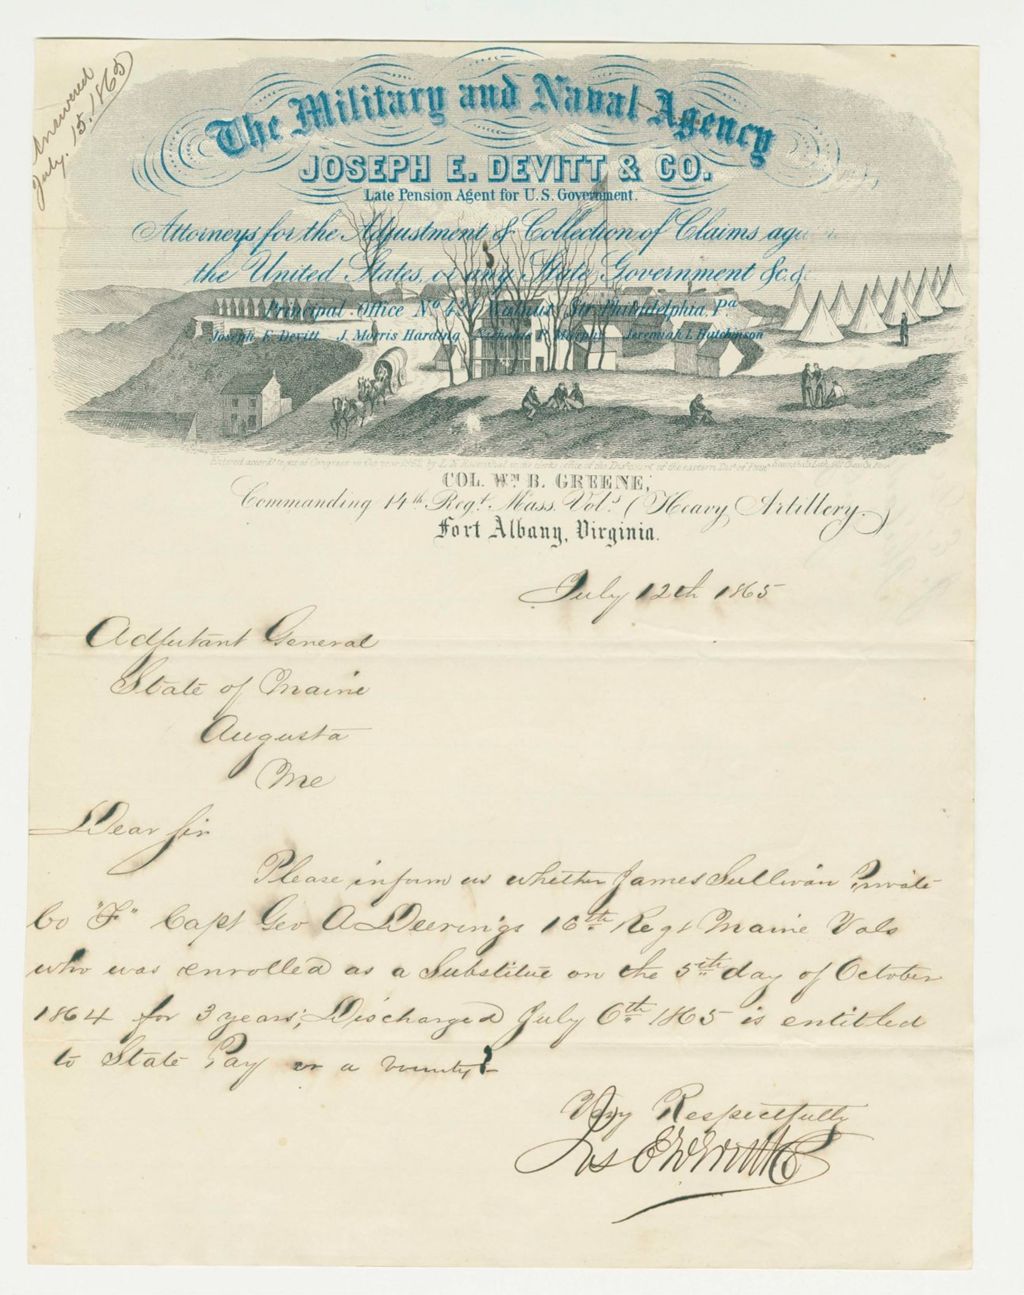 Answered
July. 15. 1865
The Military and Naval Agency
JOSEPH E. DEVITT & CO.
Late Pension Agent for U.S. Government.
Attorneys for the Adjustment & Collection of Claims against
the United States, or any State Government &c.&
Principal Office No. 427 Walnut Str. Philadelphia, Pa
Joseph E. Devitt J. Morris Harding Jeremiah L Hutchinson
COL. WM B. GREENE,
Commanding 14th Regt. Mass. Vols (Heavy Artillery.)
Fort Albany, Virginia.
July 12th 1865
Adjutant General
State of Maine
Augusta
Me
Dear Sir
Please inform us whether James Sullivan Private
Co "F" Capt Geo A Deering's 16th Regt Maine Vols
who was enrolled as a Substitue on the 5th day of October
1864 for 3 years; Discharged July 6th 1865 is entitled
to State Pay or a bounty?
Very Respectfully
Jos E Devitt & Co